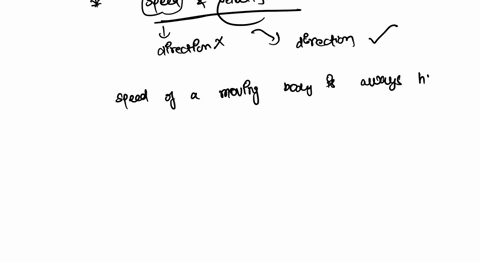 * speed &
direction X direction ✓
speed of a moving body is always h